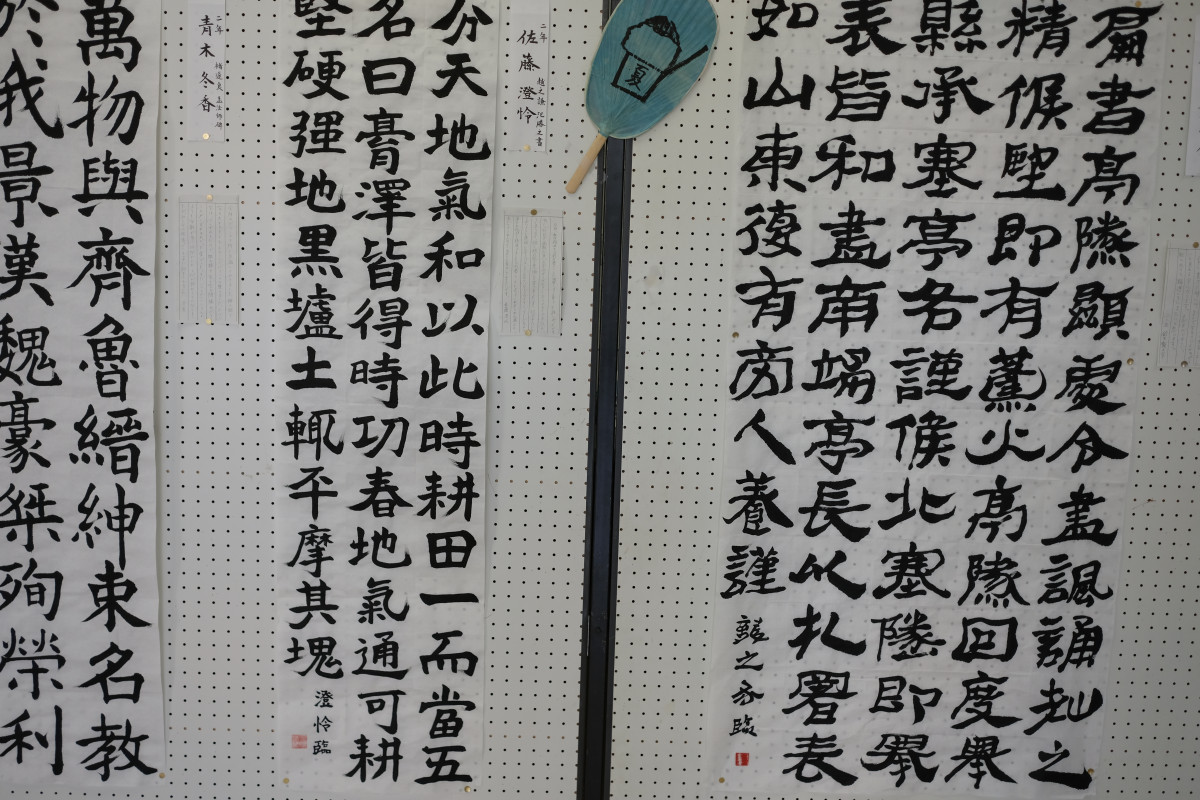 扁書亭隧顯處令盡諷誦知之
精候望即有蓬火亭隧回度舉
縣承塞亭各謹候北塞隧即舉
表皆和盡南端亭長以札署表
如山東復有旁人養謹
夏
二年
佐藤 澄怜
趙之謙 氾勝之書
分天地氣和以此時耕田一而當五
名曰膏澤皆得時功春地氣通可耕
堅硬強地黑壚土輒平摩其塊
澄怜臨
二年
青木 冬香
萬物與齊魯縉紳束名教
於我景漢魏豪桀殉榮利